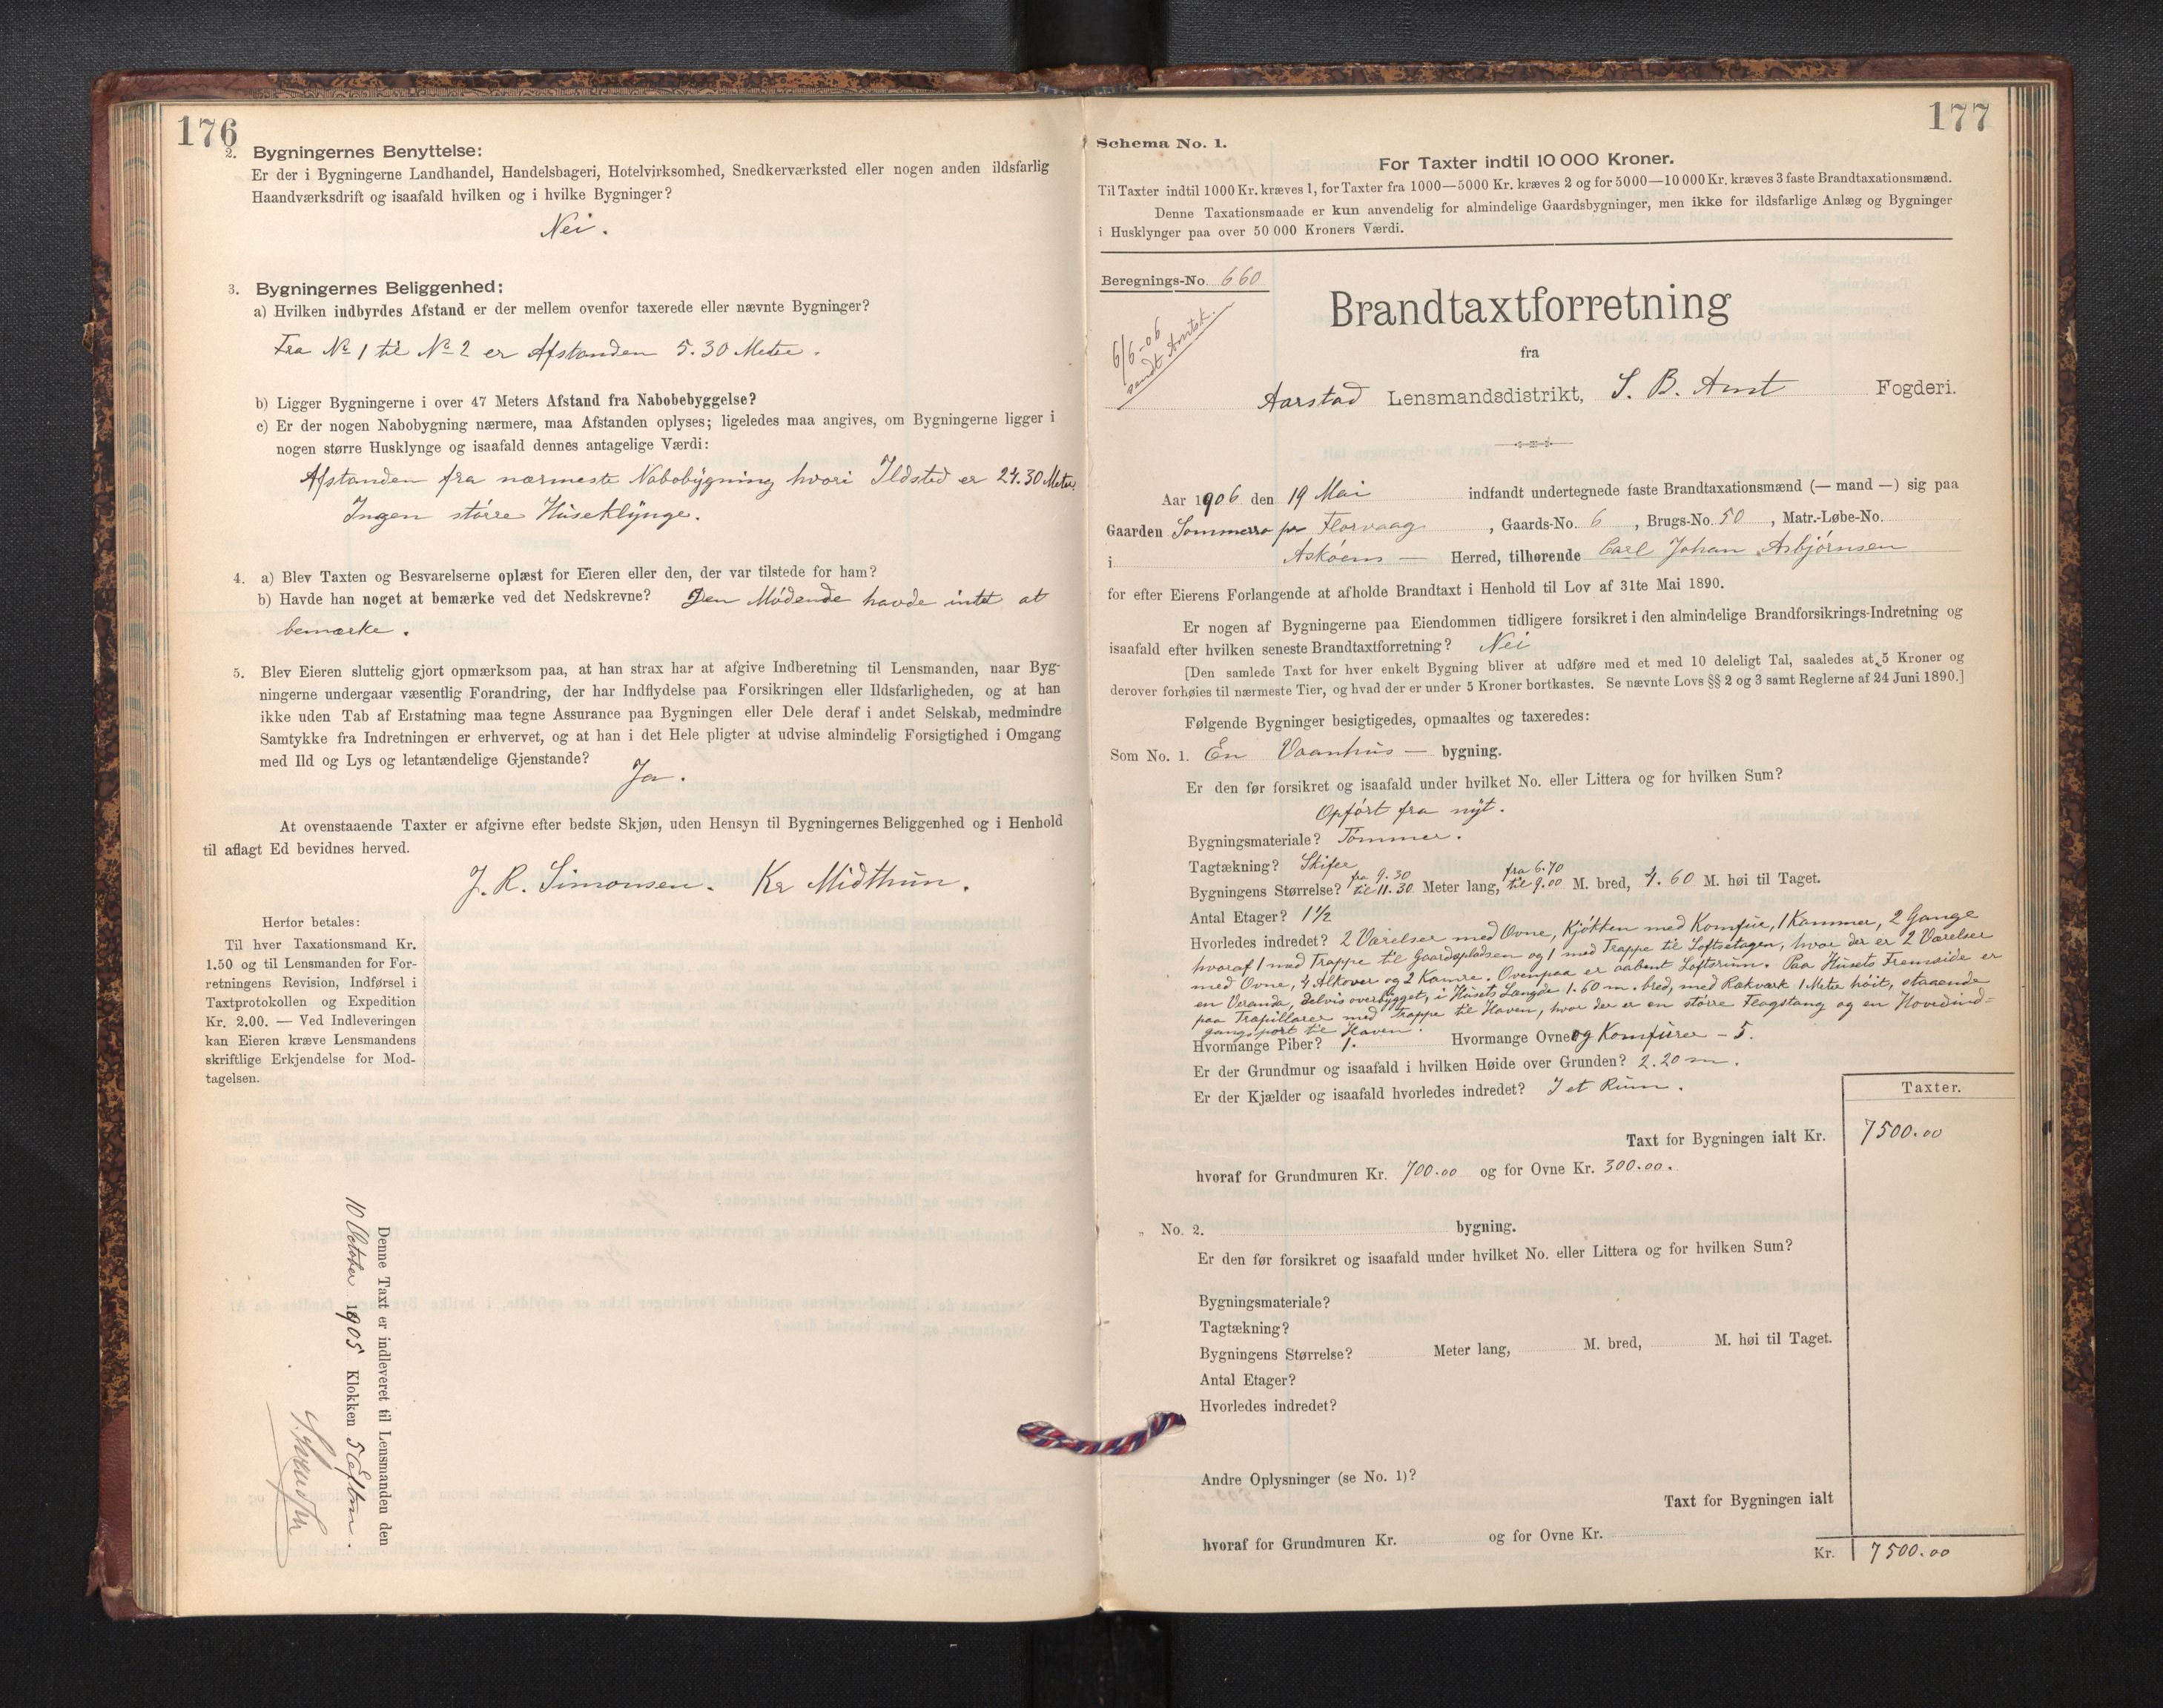 176
2. Bygningernes Benyttelse:
Er der i Bygningerne Landhandel, Handelsbageri, Hotelvirksomhed, Snedkerværksted eller nogen anden ildsfarlig
Haandværksdrift og isaafald hvilken og i hvilke Bygninger?
Nei.
3. Bygningernes Beliggenhed:
a) Hvilken indbyrdes Afstand er der mellem ovenfor taxerede eller nævnte Bygninger?
Fra No 1 til No 2 er Afstanden 5.30 Meter.
b) Ligger Bygningerne i over 47 Meters Afstand fra Nabobebyggelse?
c) Er der nogen Nabobygning nærmere, maa Afstanden oplyses; ligeledes maa angives, om Bygningerne ligger i
nogen større Husklynge og isaafald dennes antagelige Værdi:
Afstanden fra nærmeste Nabobygning hvori Ildsted er 24.30 Meter.
Ingen større Huseklynge.
4. a) Blev Taxten og Besvarelserne oplæst for Eieren eller den, der var tilstede for ham?
b) Havde han noget at bemærke ved det Nedskrevne? Den Mødende havde intet at
bemærke.
5. Blev Eieren sluttelig gjort opmærksom paa, at han strax har at afgive Indberetning til Lensmanden, naar Byg-
ningerne undergaar væsentlig Forandring, der har Indflydelse paa Forsikringen eller Ildsfarligheden, og at han
ikke uden Tab af Erstatning maa tegne Assurance paa Bygningen eller Dele deraf i andet Selskab, medmindre
Samtykke fra Indretningen er erhvervet, og at han i det Hele pligter at udvise almindelig Forsigtighed i Omgang
med Ild og Lys og letantændelige Gjenstande?
Ja.
At ovenstaaende Taxter er afgivne efter bedste Skjøn, uden Hensyn til Bygningernes Beliggenhed og i Henhold
til aflagt Ed bevidnes herved.
J. R. Simonsen. Kr Midthun.
Herfor betales:
Til hver Taxationsmand Kr.
1.50 og til Lensmanden for For-
retningens Revision, Indførsel i
Taxtprotokollen og Expedition
Kr. 2.00. — Ved Indleveringen
kan Eieren kræve Lensmandens
skriftlige Erkjendelse for Mod-
tagelsen.
Denne Taxt er indleveret til Lensmanden den
10 October 1905 Klokken 5 Eftm.
177
Schema No. 1.
For Taxter indtil 10 000 Kroner.
Til Taxter indtil 1000 Kr. kræves 1, for Taxter fra 1000—5000 Kr. kræves 2 og for 5000—10 000 Kr. kræves 3 faste Brandtaxationsmænd.
Denne Taxationsmaade er kun anvendelig for almindelige Gaardsbygninger, men ikke for ildsfarlige Anlæg og Bygninger
i Husklynger paa over 50 000 Kroners Værdi.
Beregnings-No. 660
6/6-06
sendt Amtsk.
Brandtaxtforretning
fra
Aarstad Lensmandsdistrikt, S. B. Amt Fogderi.
Aar 1906 den 19 Mai indfandt undertegnede faste Brandtaxationsmænd (— mand —) sig paa
Gaarden Sommerro pr Florvaag, Gaards-No. 6, Brugs-No. 50, Matr.-Løbe-No.
i Askøens — Herred, tilhørende Carl Johan Asbjørnsen
for efter Eierens Forlangende at afholde Brandtaxt i Henhold til Lov af 31te Mai 1890.
Er nogen af Bygningerne paa Eiendommen tidligere forsikret i den almindelige Brandforsikrings-Indretning og
isaafald efter hvilken seneste Brandtaxtforretning? Nei
[Den samlede Taxt for hver enkelt Bygning bliver at udføre med et med 10 deleligt Tal, saaledes at 5 Kroner og
derover forhøies til nærmeste Tier, og hvad der er under 5 Kroner bortkastes. Se nævnte Lovs §§ 2 og 3 samt Reglerne af 24 Juni 1890.]
Følgende Bygninger besigtigedes, opmaaltes og taxeredes:
Som No. 1. En Vaanhus — bygning.
Er den før forsikret og isaafald under hvilket No. eller Littera og for hvilken Sum?
Opført fra nyt.
Bygningsmateriale? Tømmer.
Tagtækning? Skifer
Bygningens Størrelse? fra 9.30 til 11.30 Meter lang, fra 6.70 til 9.00 M. bred, 4.60 M. høi til Taget.
Antal Etager? 1½
Hvorledes indredet? 2 Værelser med Ovne, Kjøkken med Komfur, 1 Kammer, 2 Gange
hvoraf 1 med Trappe til Gaardspladsen og 1 med Trappe til Loftsetagen, hvor der er 2 Værelser
med Ovne, 4 Alkover og 2 Kamre. Ovenpaa er aabent Loftsrum. Paa Husets Fremside er
en Veranda, delvis overbygget, i Husets Længde 1.60 m. bred, med Rækværk 1 Meter høit, staaende
paa Træpillarer med Trappe til Haven, hvor der er en større Flagstang og en Hovedind=
gangsport til Haven.
Hvormange Piber? 1. Hvormange Ovne og Komfurer – 5.
Er der Grundmur og isaafald i hvilken Høide over Grunden? 2.20 m.
Er der Kjælder og isaafald hvorledes indredet? I et Rum.
Taxter.
Taxt for Bygningen ialt Kr. 7500.00
hvoraf for Grundmuren Kr. 700.00 og for Ovne Kr. 300.00.
„ No. 2. bygning.
Er den før forsikret og isaafald under hvilket No. eller Littera og for hvilken Sum?
Bygningsmateriale?
Tagtækning?
Bygningens Størrelse? Meter lang, M. bred, M. høi til Taget.
Antal Etager?
Hvorledes indredet?
Andre Oplysninger (se No. 1)?
Taxt for Bygningen ialt
hvoraf for Grundmuren Kr. og for Ovne Kr.
Kr. 7500.00